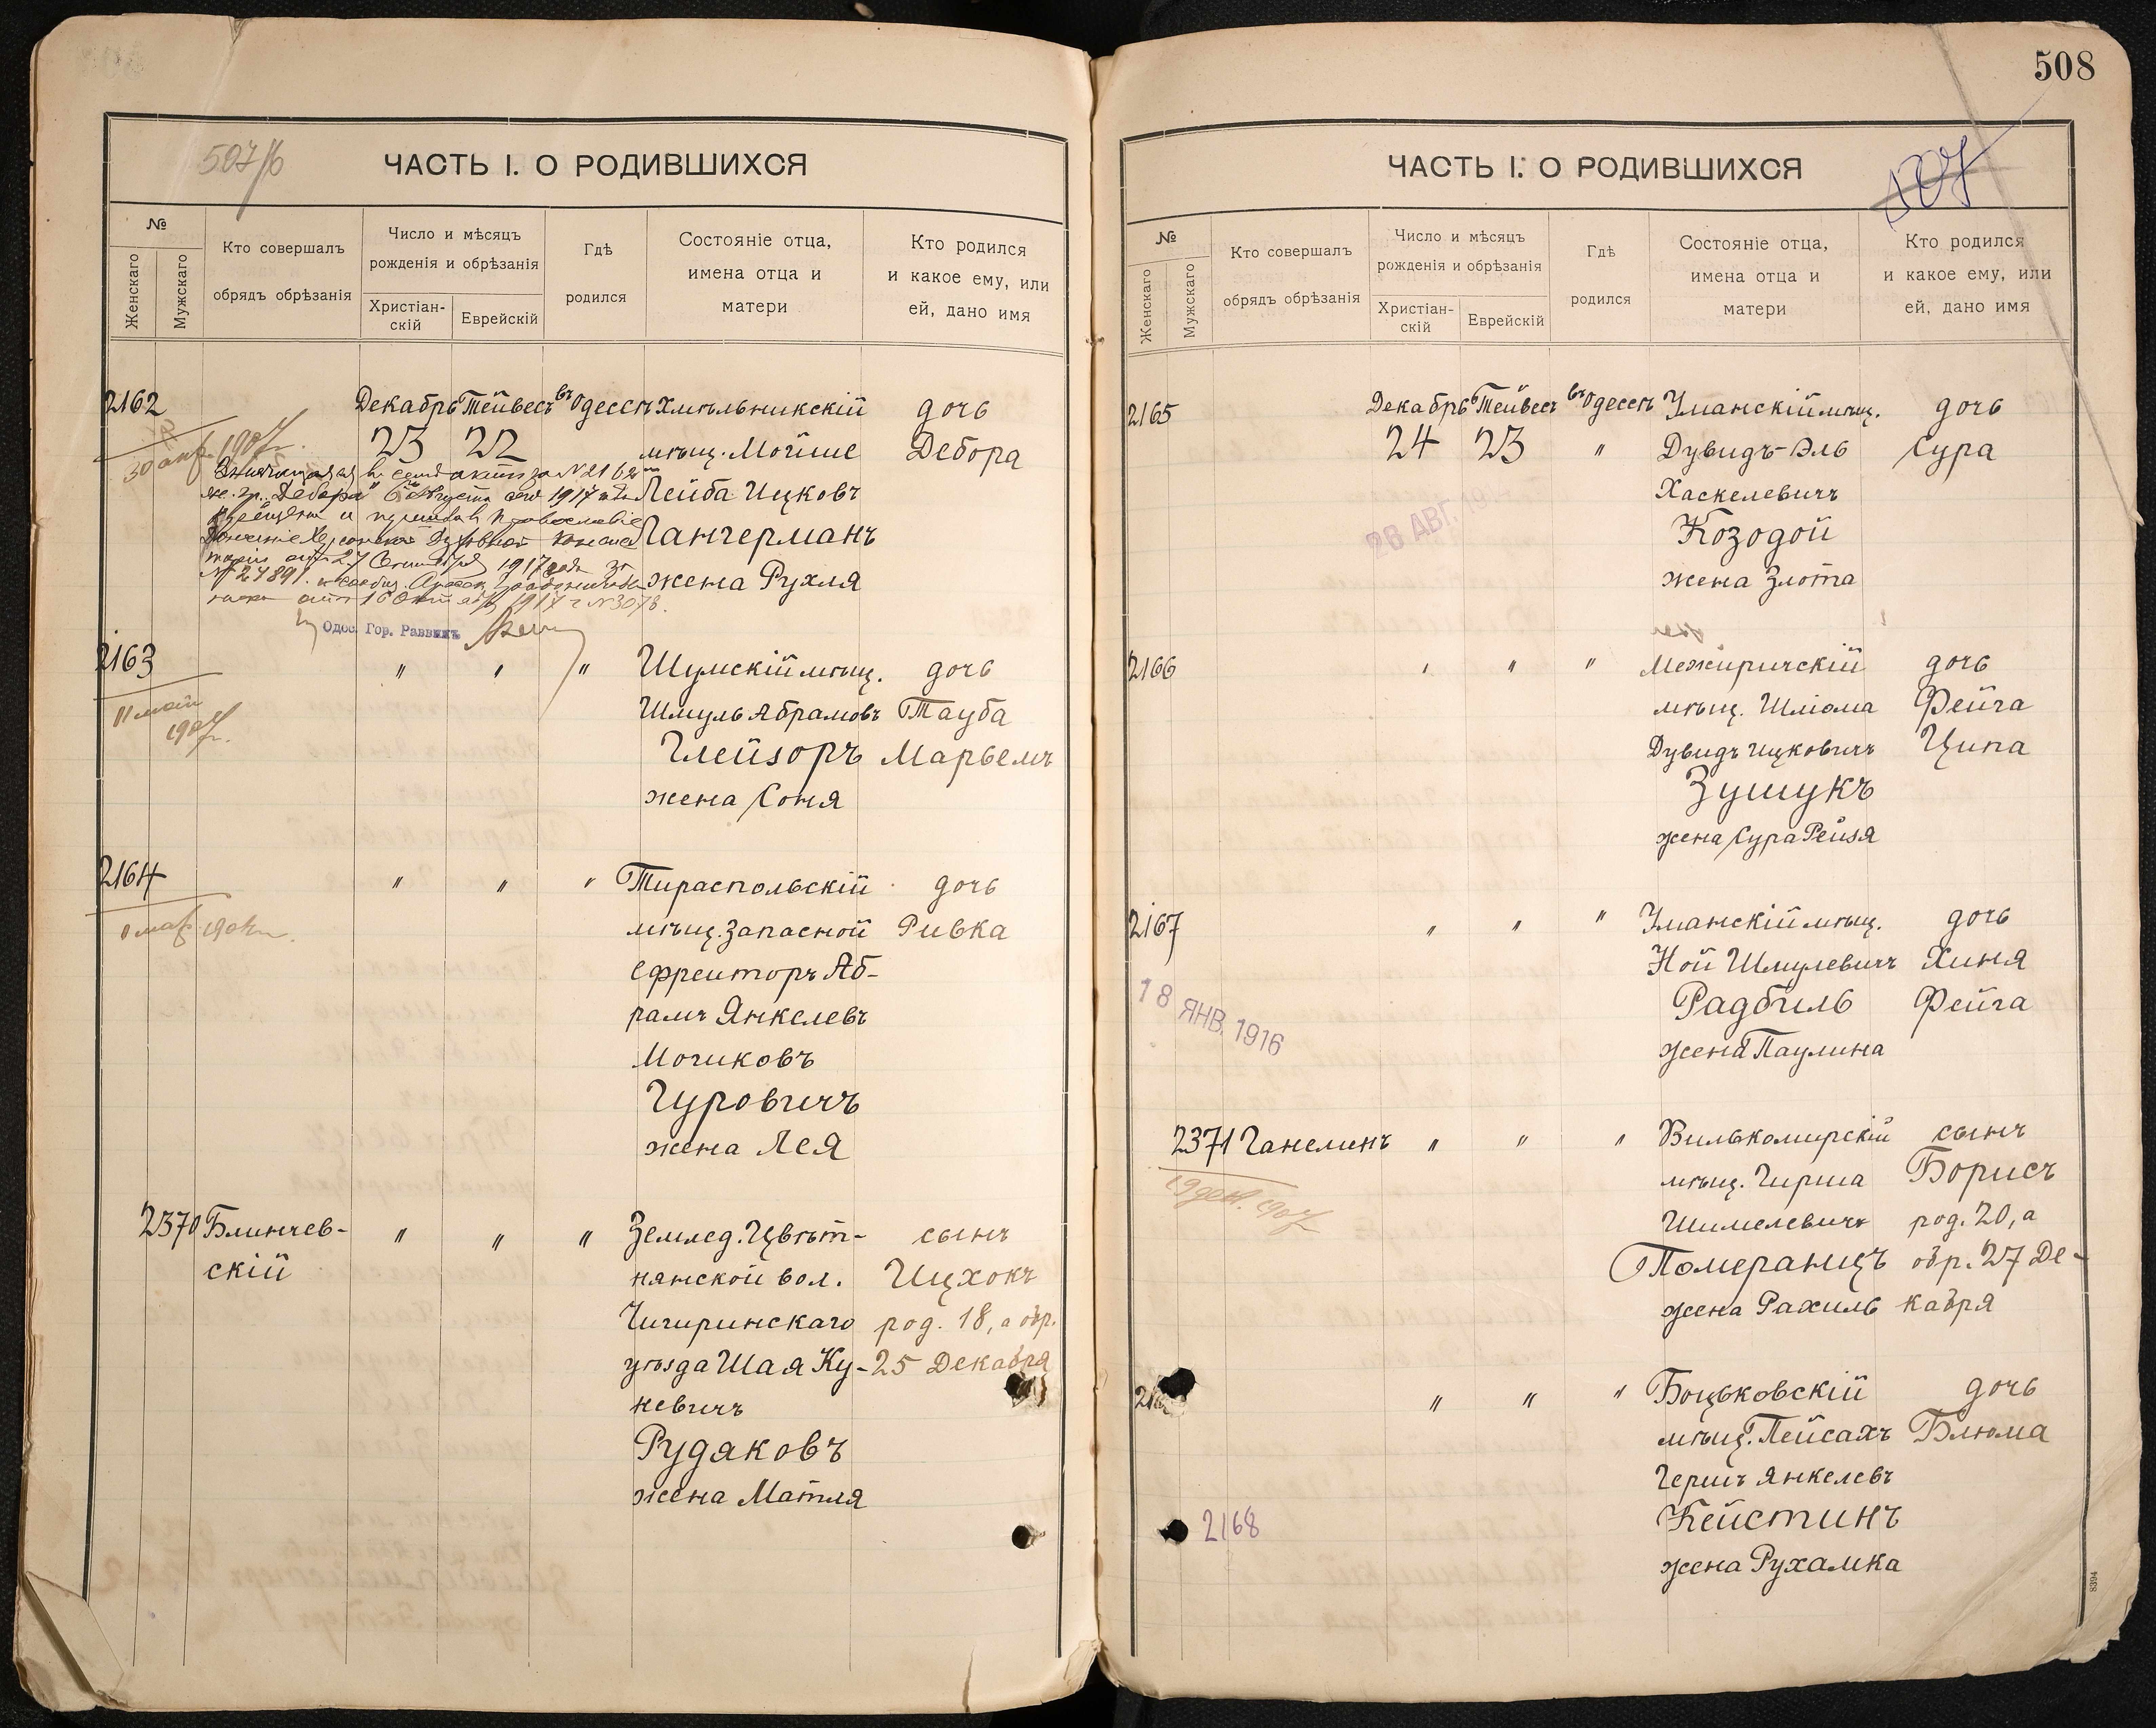 507/б
ЧАСТЬ I. О РОДИВШИХСЯ
№
Женскаго
Мужскаго
Кто совершалъ
обрядъ обрѣзанія
Число и мѣсяцъ
рожденія и обрѣзанія
Христіан-
скій
Еврейскій
Гдѣ
родился
Состояніе отца,
имена отца и
матери
Кто родился
и какое ему, или
ей, дано имя
2162 Декабрь Тейвесъ въ Одессѣ Хмѣльникскій дочь
23 22 мѣщ. Мойше Дебора
30 апр. 1907 г.
Лейба Ицковъ
Гангерманъ
жена Рухля
въ семъ актѣ за № 2162
Дебора 6 Августа 1917 года
крещена и православіе
Херсонской Духовной
отъ 27 Сентября 1917 года за
№ 24891
отъ 16 Октября 1917 г № 3078.
Одес. Гор. Раввинъ
2163 " " " Шумскій мѣщ. дочь
11 май
1907 г.
Шмуль Абрамовъ Тауба
Глейзоръ Марьемъ
жена Соня
2164 " " " Тираспольскій дочь
мѣщ. Запасной Ривка
ефрейторъ Аб-
рамъ Янкелевъ
Мочиковъ
Гуровичъ
жена Лея
2370 Блинчев- " " " Землед. Цвѣт- сынъ
скій нянской вол. Ицхокъ
Чигиринскаго род. 18, а обр.
уѣзда Шая Ку- 25 Декабря
невичъ
Рудяковъ
жена Матля
508
507
ЧАСТЬ I. О РОДИВШИХСЯ
№
Женскаго
Мужскаго
Кто совершалъ
обрядъ обрѣзанія
Число и мѣсяцъ
рожденія и обрѣзанія
Христіан-
скій
Еврейскій
Гдѣ
родился
Состояніе отца,
имена отца и
матери
Кто родился
и какое ему, или
ей, дано имя
2165 Декабрь Тейвесъ въ Одессѣ Уманскій мѣщ. дочь
24 23 " Дувидъ-Эль Сура
Хаскелевичъ
26 АВГ.
Козодой
жена Злота
2166 " " " Межиричскій дочь
мѣщ. Шліома Фейга
Дувидъ Ицковичъ Ципа
Зушукъ
жена Сура Рейзя
2167 " " " Уманскій мѣщ. дочь
Ной Шмулевичъ Хиня
18 ЯНВ. 1916
Радбиль Фейга
жена Паулина
2371 Ганелинъ " " " Вилькомирскій сынъ
19 дек. 1907 г.
мѣщ. Гирша Борисъ
Шимелевичъ род. 20, а
Померанцъ обр. 27 Де-
жена Рахиль кабря
" " " Боцьковскій дочь
мѣщ. Пейсахъ Блюма
Гершъ Янкелевъ
2168
Кейстинъ
жена Рухамка
8394